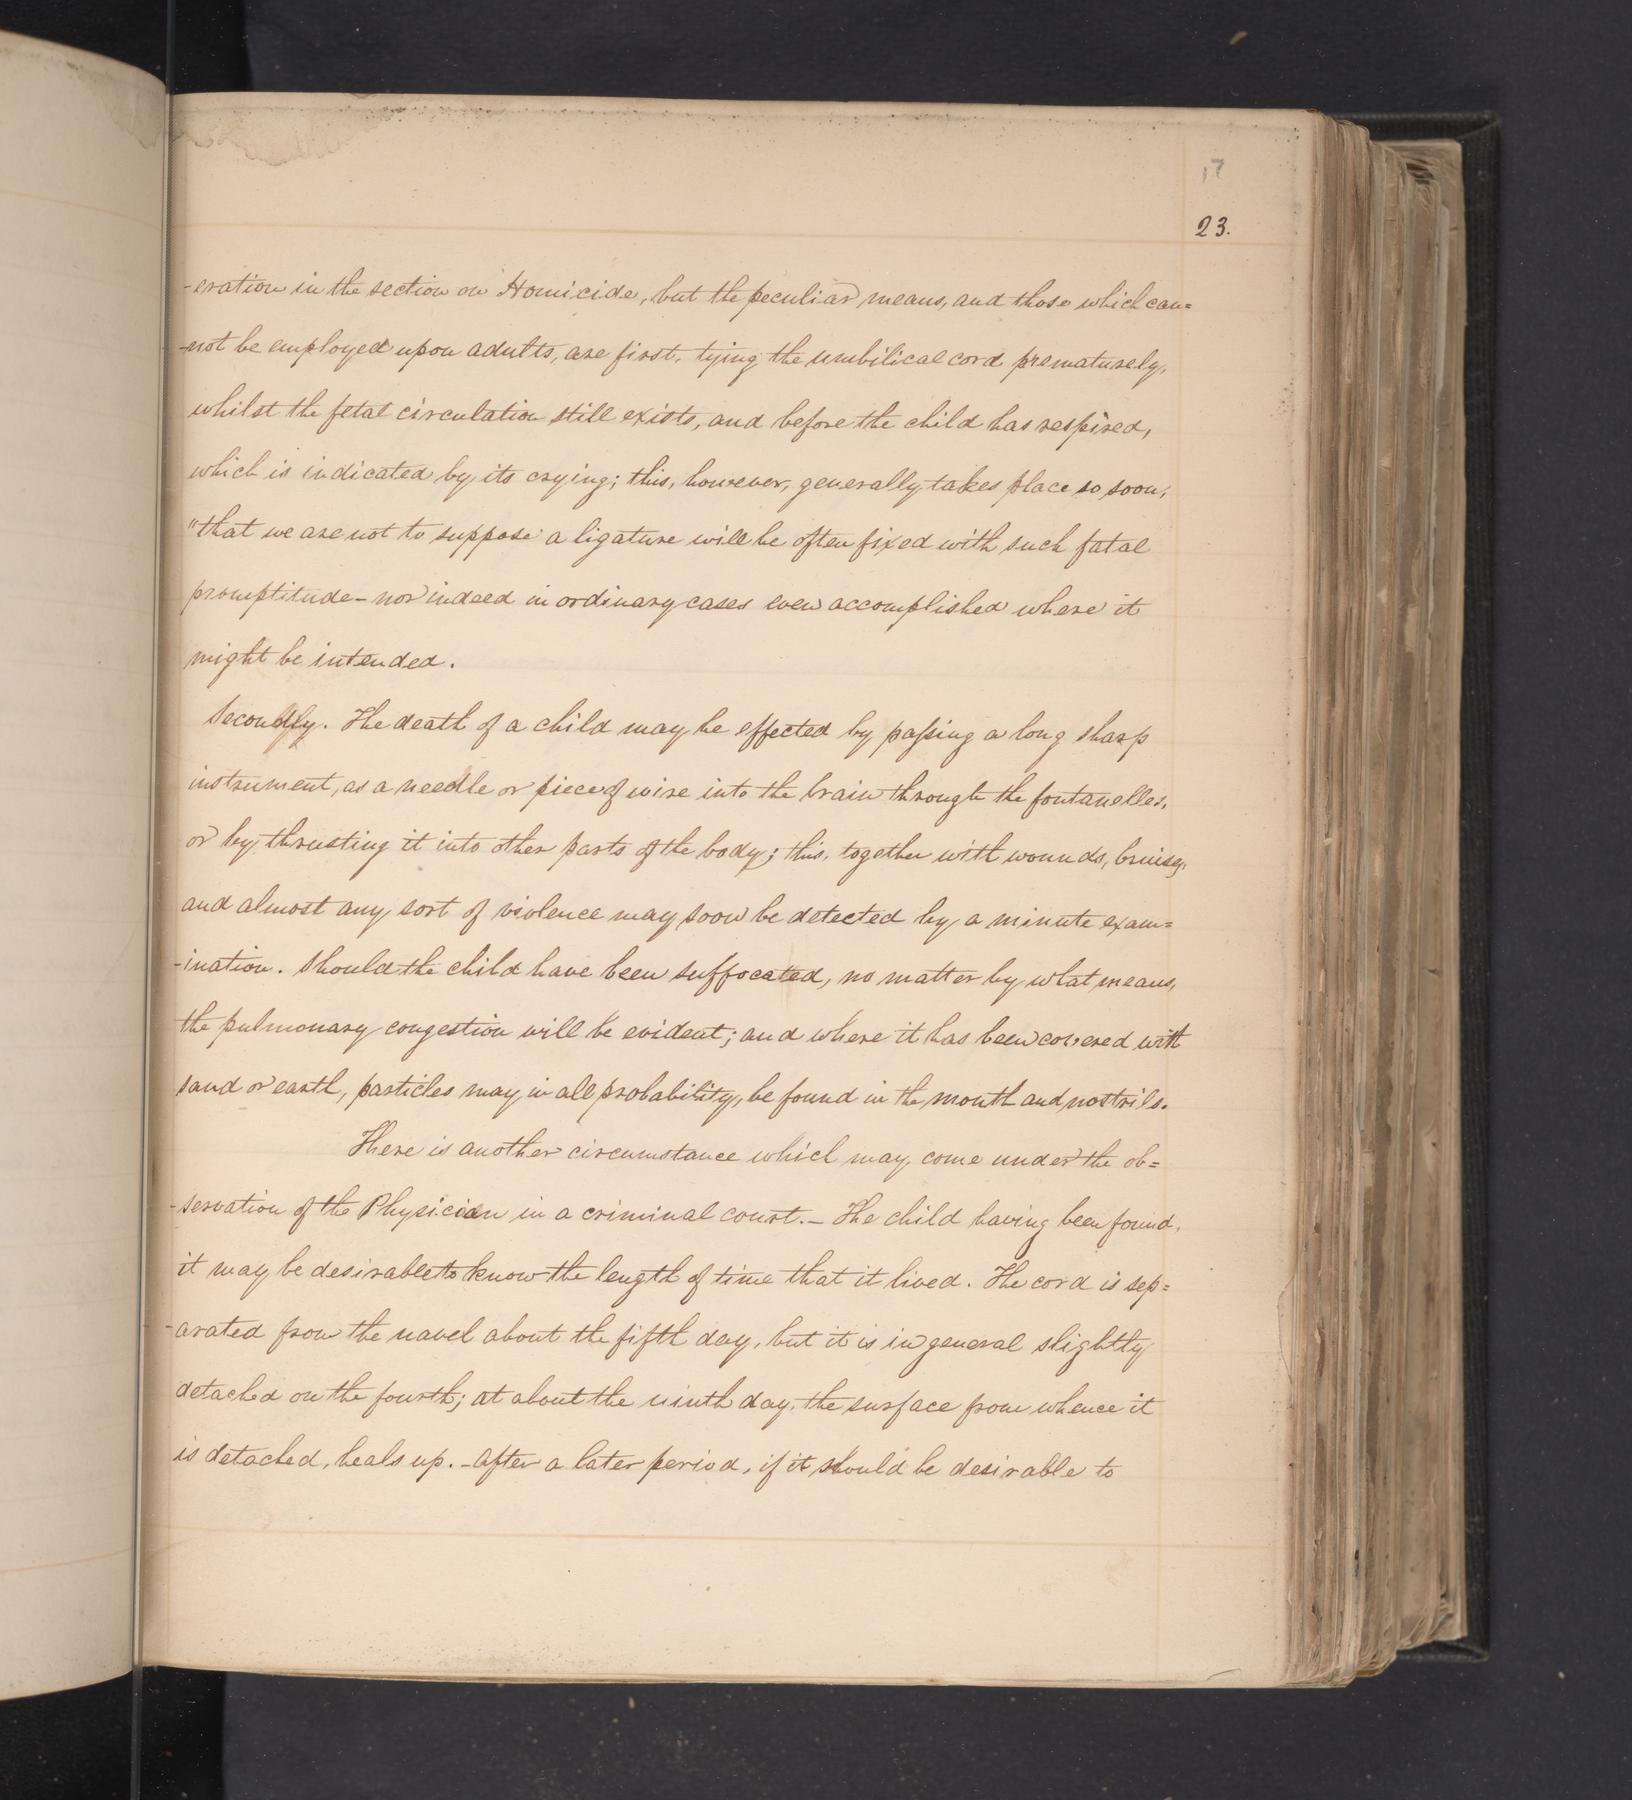 17
23.
-eration in the section on Homicide, but the peculiar means, and those which can=
-not be employed upon adults, are first, tying the umbilical cord prematurely,
whilst the fetal circulation still exists, and before the child has respired,
which is indicated by its crying; this, however, generally takes place so soon,
"that we are not to suppose a ligature will be often fixed with such fatal
promptitude - nor indeed in ordinary cases even accomplished where it
might be intended.
Secondly. The death of a child may be effected by passing a long sharp
instrument, as a needle or piece of wire into the brain through the fontanelles,
or by thrusting it into other parts of the body; this, together with wounds, bruises,
and almost any sort of violence may soon be detected by a minute exam=
-ination. Should the child have been suffocated, no matter by what means,
the pulmonary congestion will be evident; and where it has been covered with
sand or earth, particles may, in all probability, be found in the mouth and nostrils.
There is another circumstance which may, come under the ob=
-servation of the Physician in a criminal court. - The child having been found,
it may be desirable to know the length of time that it lived. The cord is sep=
-arated from the navel about the fifth day, but it is in general slightly
detached on the fourth; at about the ninth day, the surface from whence it
is detached, heals up. - After a later period, if it should be desirable to